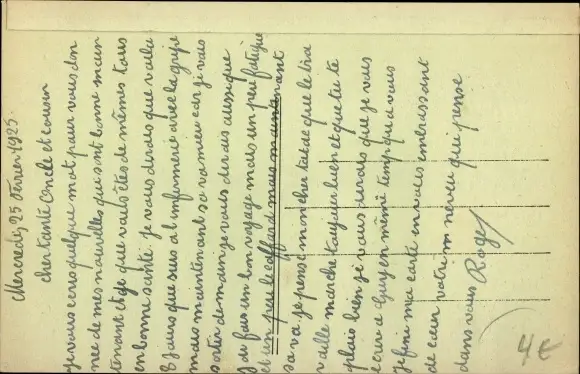 Mercredi 25 Février 1925
cher tante Oncle et cousin
je vous ecris quelque mot pour vous don
nee de mes nouvelles qui sont bonne main
tenant et que vous êtes de mêmes tous
en bonne santé. je vous dirais que voila
8 Jours que suis a l infirmerie avec la gripe
mais maintenant sa va mieu car je vais
sortir demain je vous dirais aussi que
J ai fais un bon voyage mais un peu fatigue
et un peu le caffard mais maintenant
sa va. je pense mon cher tatae que le tra
vaille marche toujour bien et que tu te
plais bien je vous dirais que je vais
ecrir a Guy en même temp qu a vous
je fini ma carte en vous embrassant
de cœur votre neveu qui pense
dans vous Roger
4€